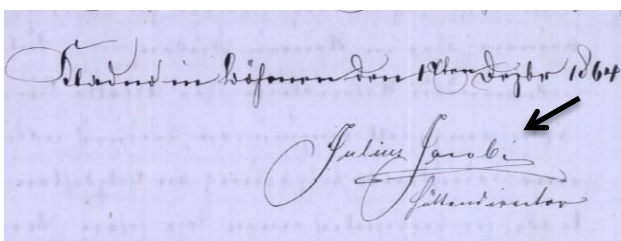 Kladno in Böhmen den 17ten Dezbr 1864
Julius Jacobi
Hüttendirector